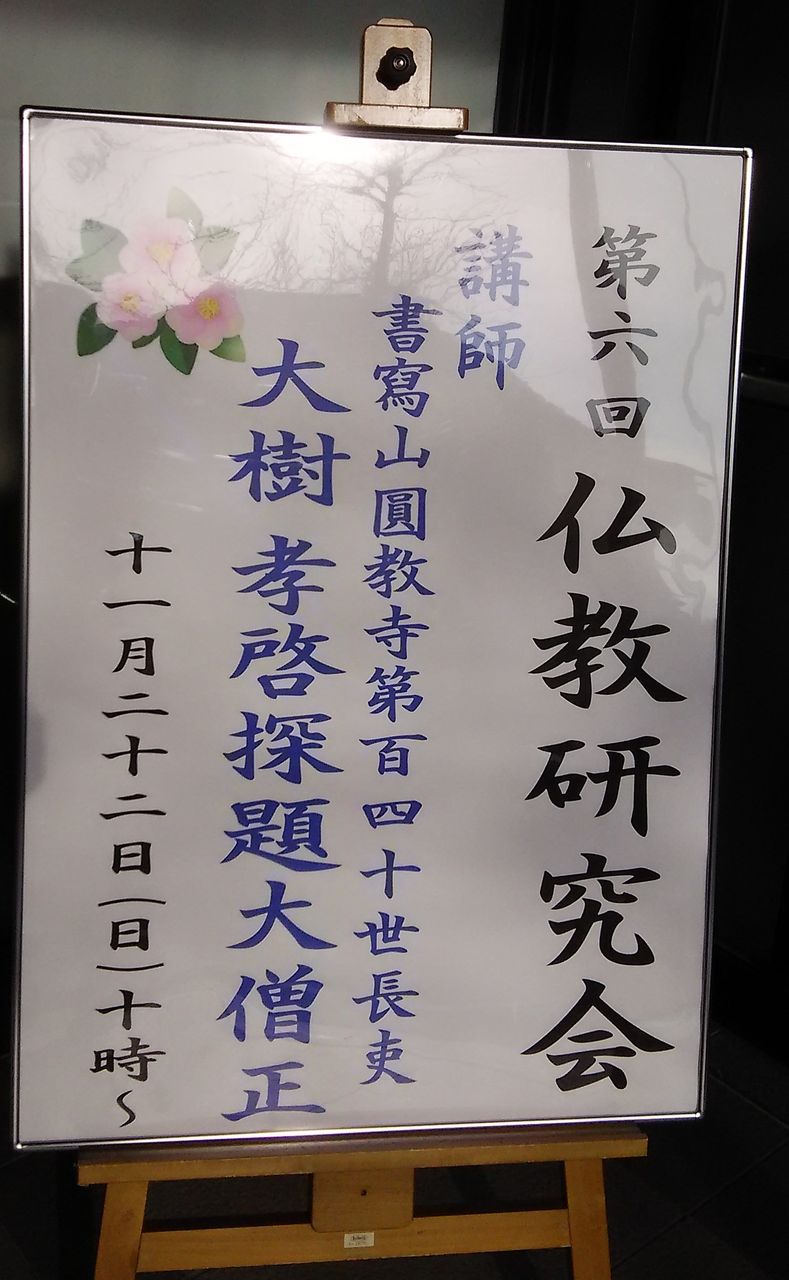 第六回 仏教研究会
講師
書寫山圓教寺第百四十世長吏
大樹 孝啓探題大僧正
十一月二十二日(日)十時〜